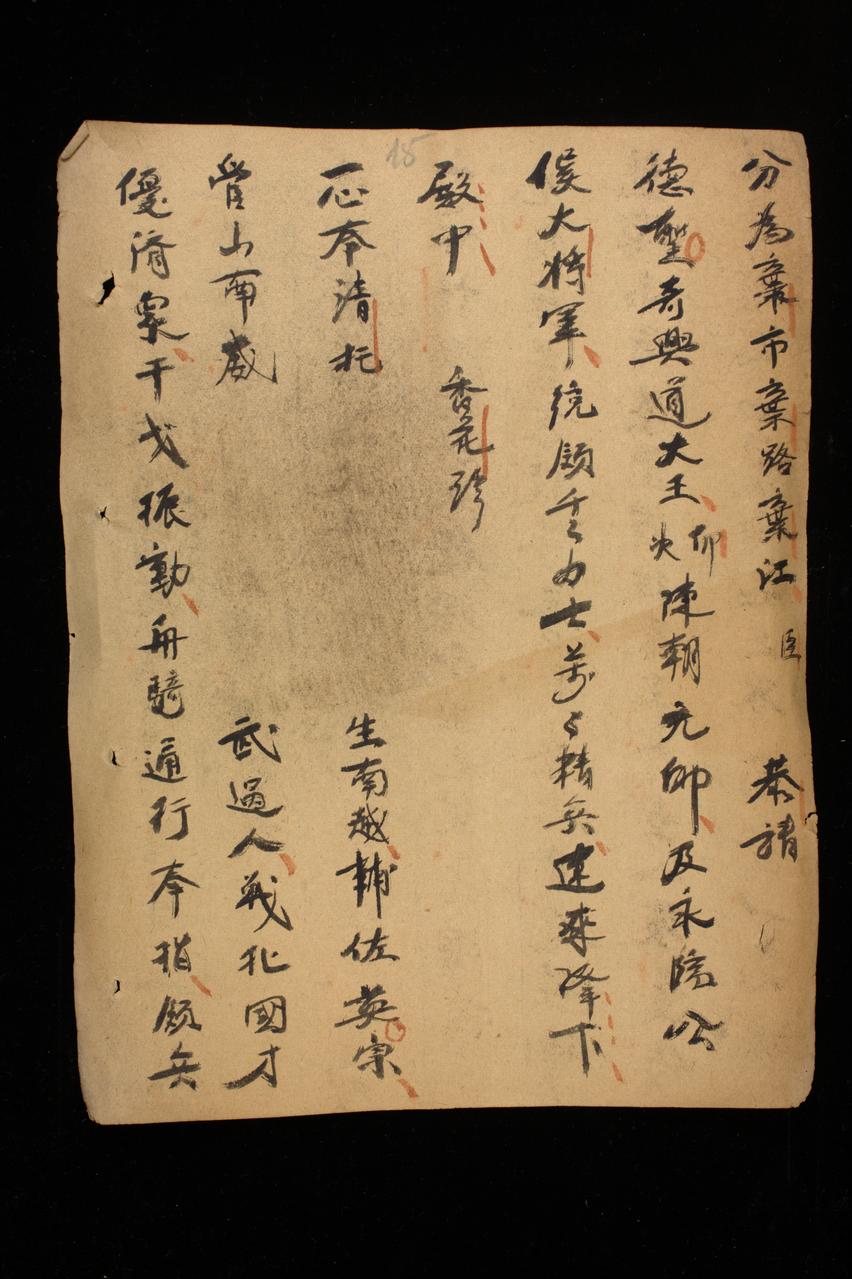 分為棄市棄路棄江 臣 恭請
德聖哥興道大王 仰 陳朝元帥及永院公
侯大將軍統領千々力士萬々精兵速來降下
殿中 香花
一心奉請托 生南越輔佐英宗
山南 武過人戰 國才
優濟衆干戈振動舟騎通行奉指領兵
15